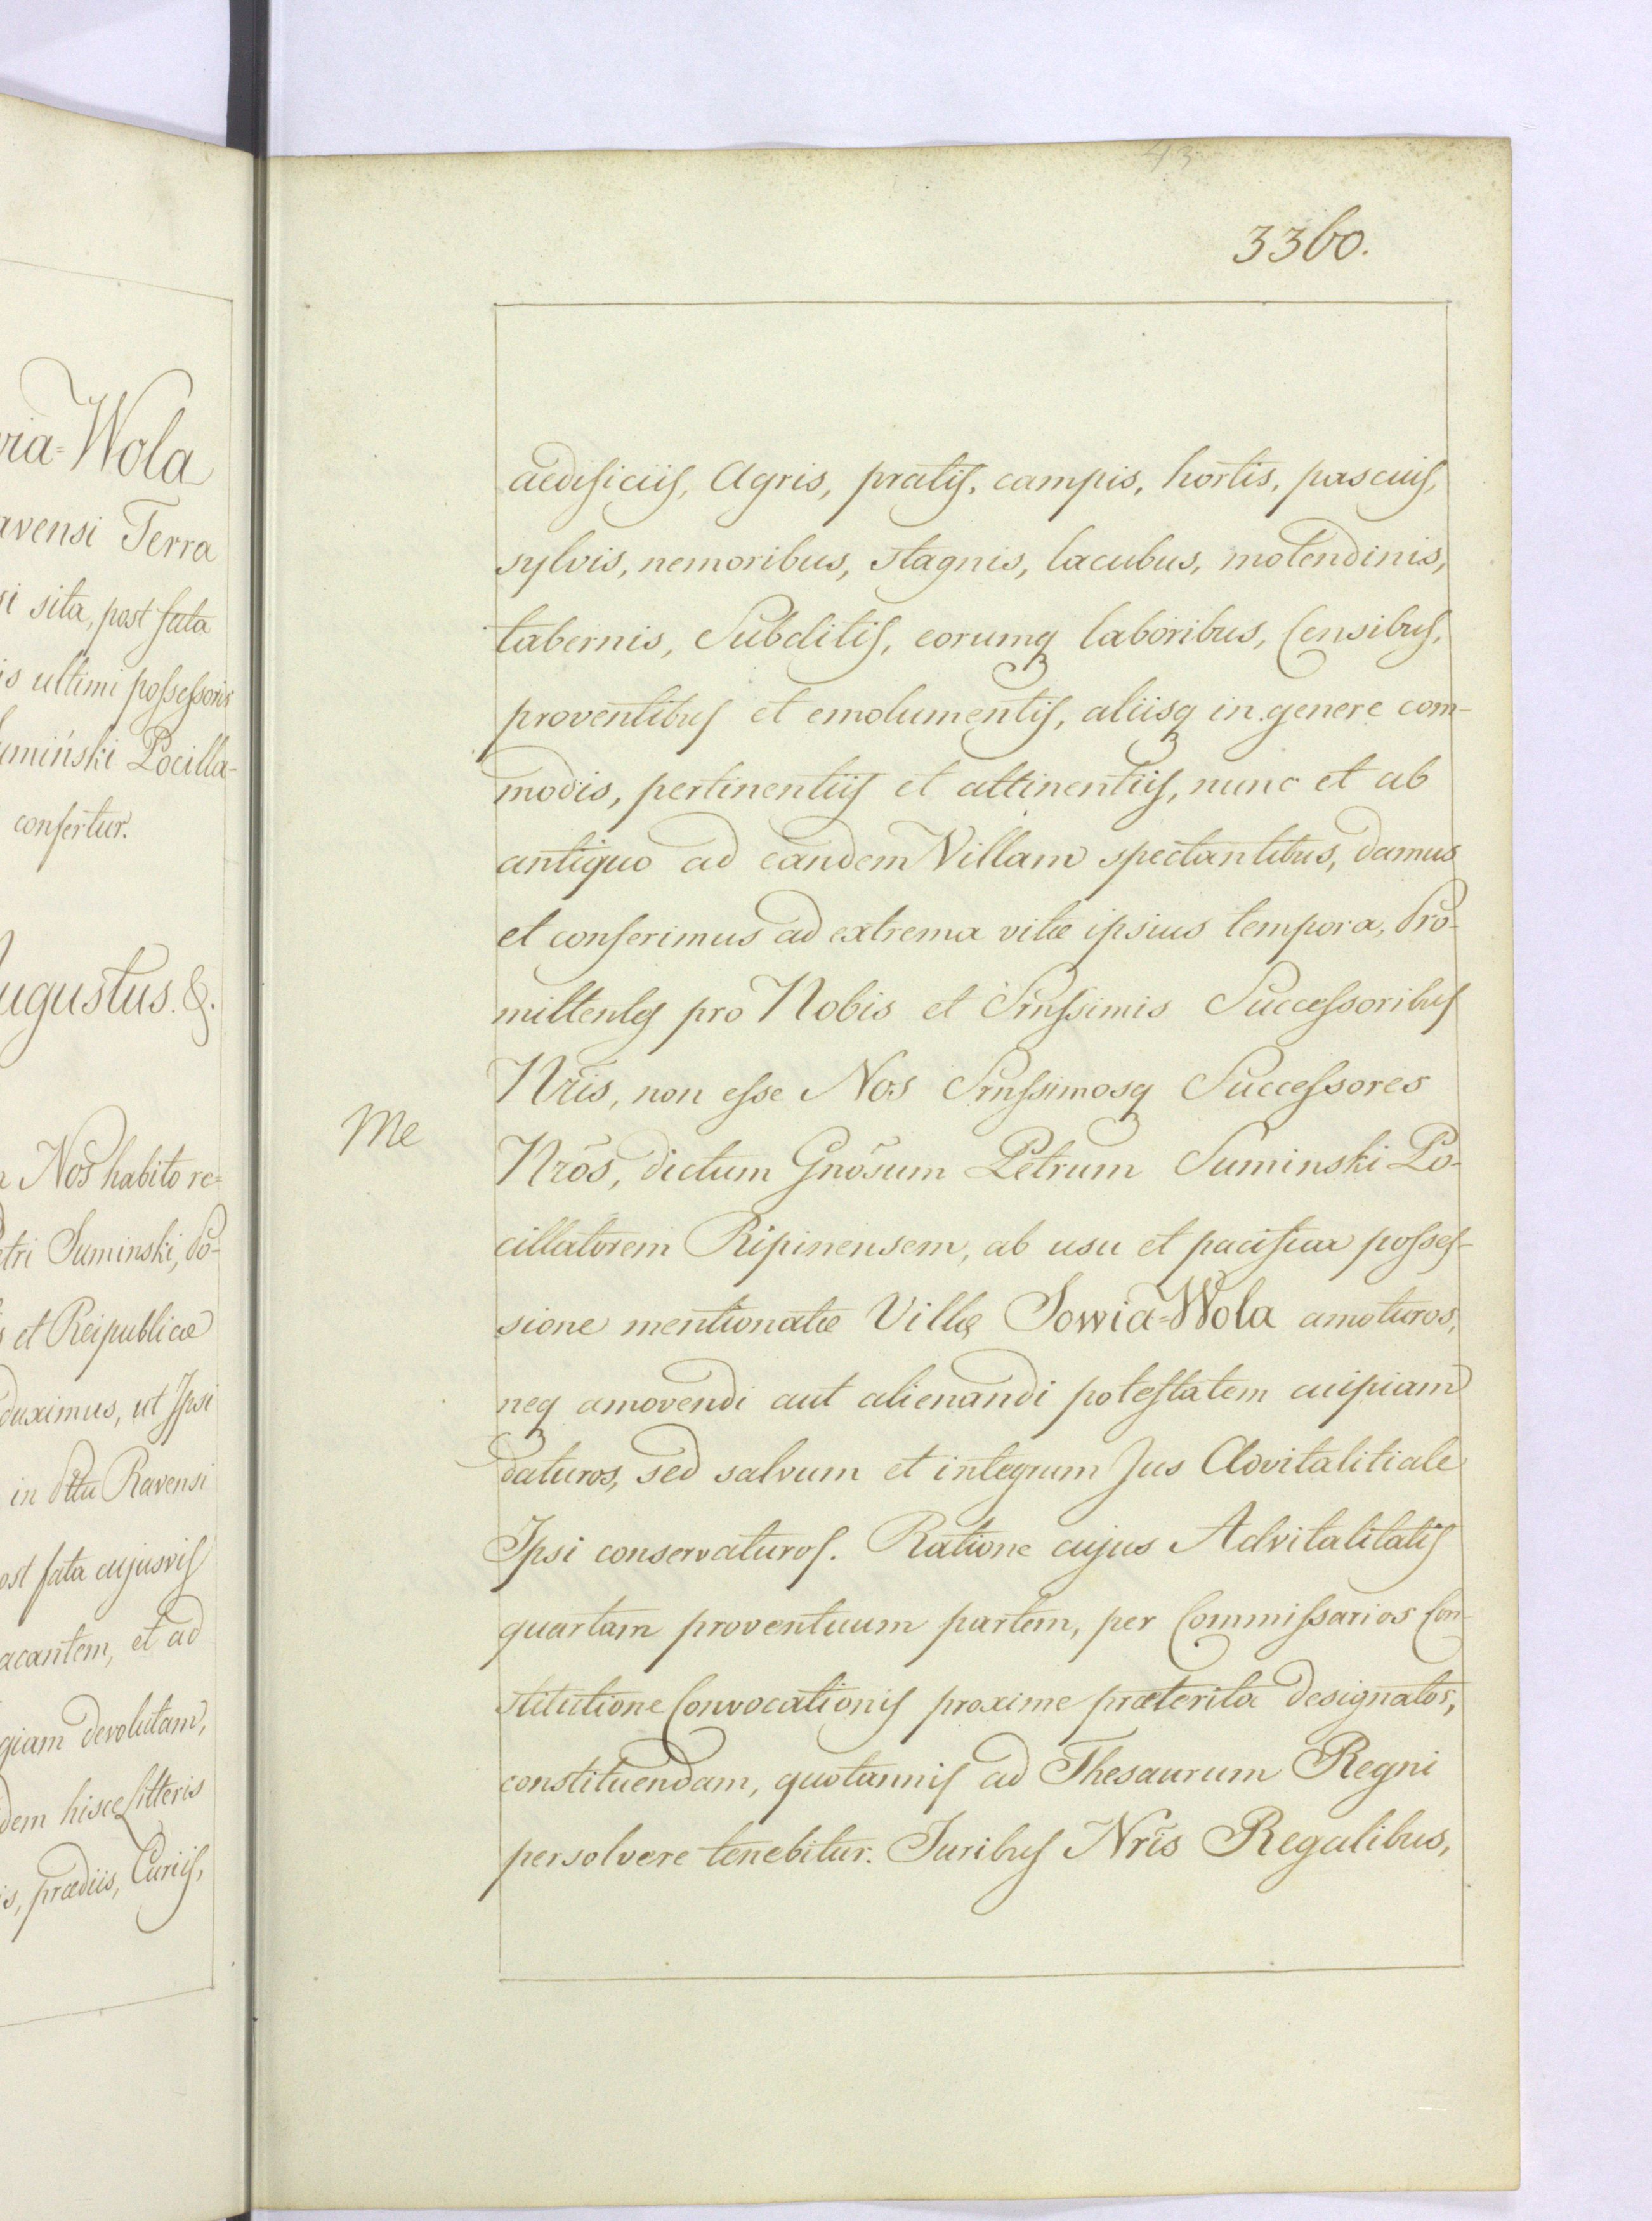 via=Wola
avensi Terra
si sita, post fata
is ultimi possessoris
umiński Pocilla-
confertur.
ugustus. &.
a Nos habito re-
etri Suminski, Po-
s et Reipublicæ
duximus, ut Ipsi
in Pttu Ravensi
ost fata cujusvis
acantem, et ad
giam devolutam,
dem hisce Litteris
is, prædiis, Curiis,
43
3360.
aedificiis, Agris, pratis, campis, hortis, pascuis,
sylvis, nemoribus, stagnis, lacubus, molendinis,
tabernis, Subditis, eorumq laboribus, Censibus,
proventibus et emolumentis, aliisq in genere com-
modis, pertinentiis et attinentiis, nunc et ab
antiquo ad eandem Villam spectantibus, damus
et conferimus ad extrema vitæ ipsius tempora, Pro-
mittentes pro Nobis et Srnssimis Successoribus
Nris, non esse Nos Srnssimosq Successores
Me
Nros, dictum Gnosum Petrum Suminski Po-
cillatorem Ripinensem, ab usu et pacifica posses-
sione mentionatæ Villæ Sowia=Wola amoturos,
neq amovendi aut alienandi potestatem cuipiam
daturos, sed salvum et integrum Jus Advitalitiale
Ipsi conservaturos. Ratione cujus Advitalitatis
quartam proventuum partem, per Commissarios Con-
stitutione Convocationis proxime præterita designatos,
constituendam, quotannis ad Thesaurum Regni
persolvere tenebitur. Juribus Nris Regalibus,